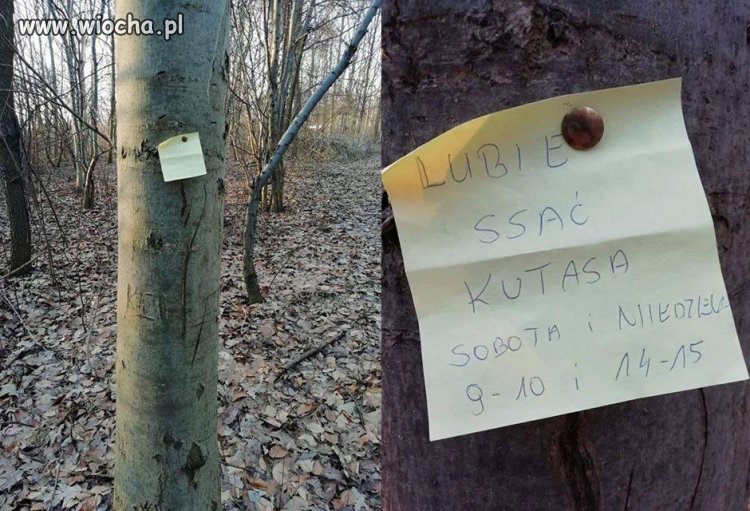 www.wiocha.pl
LUBIE
SSAĆ
KUTASA
SOBOTA i NIEDZIEL
9-10 i 14-15